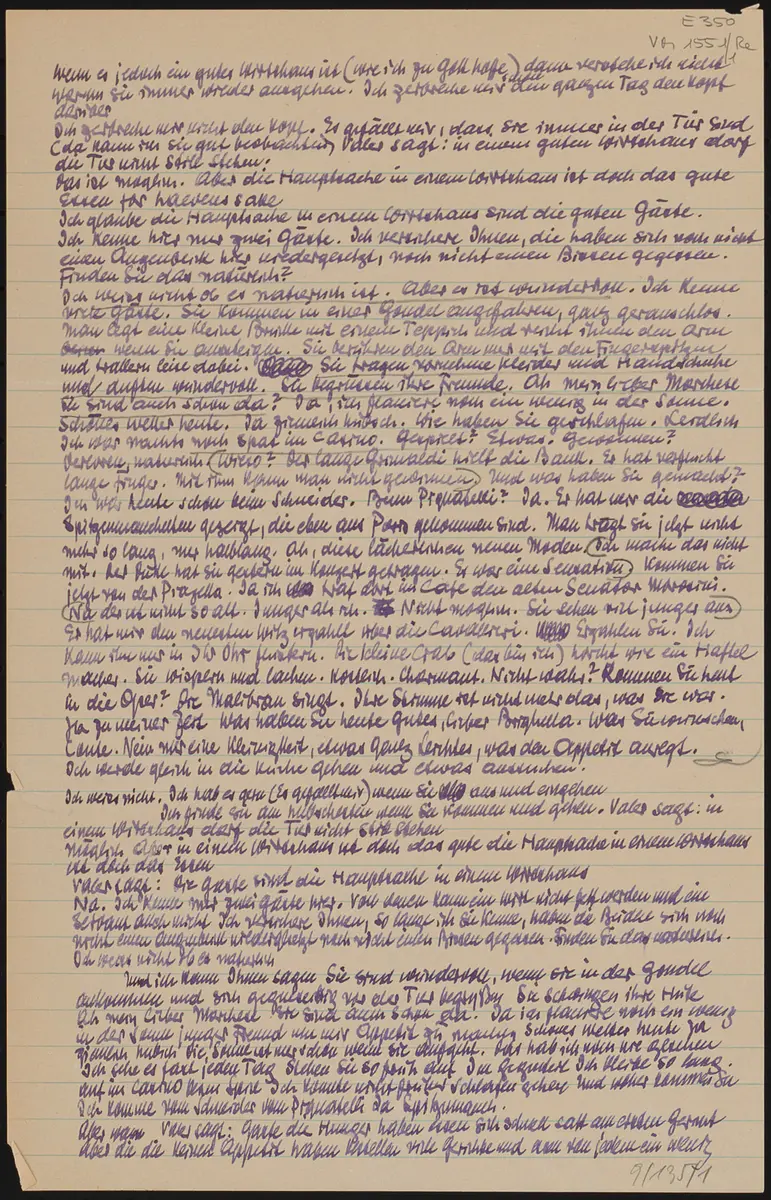 E 350
VBr 1551/Re
1
Wenn es jedoch ein gutes Wirtshaus ist (wie ich zu Gott hoffe) dann verstehe ich nicht
warum Sie immer wieder ausgehen. Ich zerbreche mir den ganzen Tag den Kopf
darüber
Ich zerbreche mir nicht den Kopf. Es gefällt mir, dass Sie immer in der Tür sind
(da kann ich Sie gut beobachten) Vater sagt: in einem guten Wirtshaus darf
die Tür nicht stille stehen.
Das ist möglich. Aber die Hauptsache in einem Wirtshaus ist doch das gute
Essen for heavens sake
Ich glaube die Hauptsache in einem Wirtshaus sind die guten Gäste.
Ich kenne hier nur zwei Gäste. Ich versichere Ihnen, die haben sich noch nicht
einen Augenblick hier niedergesetzt, noch nicht einen Bissen gegessen.
Finden Sie das natürlich?
Ich weiss nicht ob es natürlich ist. Aber es ist wundervoll. Ich kenne
viele Gäste. Sie kommen in einer Gondel angefahren, ganz geräuschlos.
Man legt eine kleine Brücke mit einem Teppich und reicht ihnen den Arm
wenn Sie aussteigen. Sie berühren den Arm nur mit den Fingerspitzen
und trällern leise dabei. Sie tragen vornehme Kleider und Handschuhe
und duften wundervoll. Sie begrüssen ihre Freunde. Ah mein lieber Marchese
Sie sind auch schon da? Ja, ich flaniere noch ein wenig in der Sonne.
Schönes Wetter heute. Ja ziemlich hübsch. Wie haben Sie geschlafen. Leidlich
Ich war nachts noch spät im Casino. Gespielt? Etwas. Gewonnen?
Verloren, natürlich (Wieso? Der lange Grimaldi hielt die Bank. Er hat verflucht
lange Finger. Mit ihm kann man nicht gewinnen) Und was haben Sie gemacht?
Ich war heute schon beim Schneider. Beim Pignatelli? Ja. Er hat mir die
Spitzenmanchetten gezeigt, die eben aus Paris gekommen sind. Man trägt sie jetzt nicht
mehr so lang, nur halblang. Ah, diese lächerlichen neuen Moden. (Ich mache das nicht
mit. Der Duke hat sie gestern im Konzert getragen. Es war eine Sensation) Kommen Sie
jetzt von der Piazetta. Ja ich traf dort im Cafe den alten Senator Morosini.
(Na der ist nicht so alt. Jünger als ich. Nicht möglich. Sie sehen viel jünger aus)
Er hat mir den neuesten Witz erzählt über die Cavalieri. Erzählen Sie. Ich
kann ihn nur in Ihr Ohr flüstern. Die kleine Crab (das bin ich) horcht wie ein Haftel
macher. Sie wispern und lachen. Köstlich. Charmant. Nicht wahr? Kommen Sie heut
in die Oper? Die Malibran singt. Ihre Stimme ist nicht mehr das, was sie war.
Ja zu meiner Zeit Was haben Sie heute Gutes, lieber Brighella. Was Sie wünschen,
Conte. Nein nur eine Kleinigkeit, etwas ganz leichtes, was den Appetit anregt.
Ich werde gleich in die Küche gehen und etwas aussuchen.
Ich weiss nicht. Ich hab es gern (Es gefällt mir) wenn Sie aus und eingehen
Ich finde Sie am hübschesten wenn Sie kommen und gehen. Vater sagt: in
einem Wirtshaus darf die Tür nicht still stehen
Möglich Aber in einem Wirtshaus ist doch das gute die Hauptsache in einem Wirtshaus
ist doch das Essen
Vater sagt: Die Gäste sind die Hauptsache in einem Wirtshaus
Na. Ich kenne nur zwei Gäste hier. Von denen kann ein Wirt nicht fett werden und ein
Servant auch nicht Ich versichere Ihnen, so lange ich sie kenne, haben die Beiden sich noch
nicht einen Augenblick niedergesetzt noch nicht einen Bissen gegessen. Finden Sie das natürlich.
Ich weiss nicht ob es natürlich
Und ich kann Ihnen sagen Sie sind wundervoll, wenn sie in der Gondel
ankommen und sich gegenseitig vor der Tür begrüssen Sie schwingen ihre Hüte
Ah mein lieber Marchese Sie sind auch schon da? Ja ich flaniere noch ein wenig
in der Sonne junger Freund um mir Appetit zu machen Schönes Wetter heute Ja
ziemlich hübsch Die Sonne ist nur schön wenn sie aufgeht. Das hab ich noch nie gesehen
Ich sehe es fast jeden Tag Stehen Sie so früh auf Im Gegenteil Ich bleibe so lang.
auf im Casino beim Spiel Ich könnte nicht früher schlafen gehen Und woher kommen Sie
Ich komme vom Schneider vom Pignatelli Ja Spitzenman.
Aber wann Vater sagt: Gäste die Hunger haben essen sich schnell satt am ersten Gericht
Aber die die keinen Appetit haben bestellen viele Gerichte und von jedem ein wenig
9/135/1